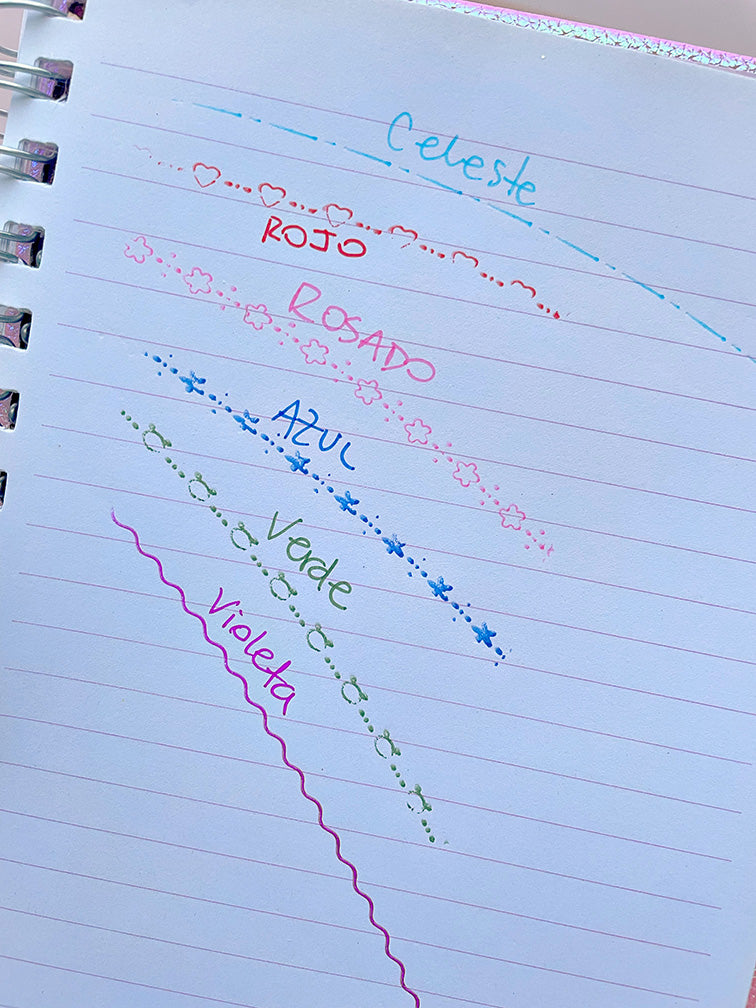 Celeste
ROJO
ROSADO
AZUL
Verde
Violeta